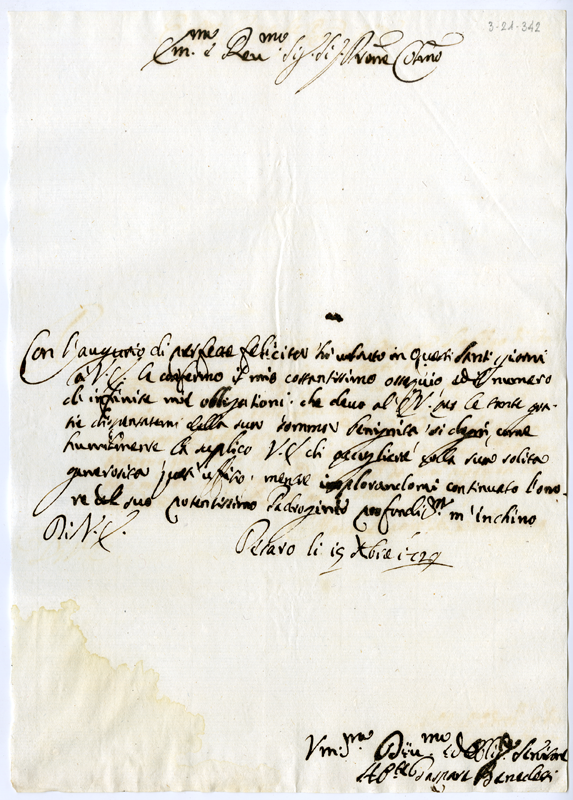 3-21-342
Em.mo e Rev.mo Sig. Sig. Prone Colmo
Con l'augurio di perfette felicità in questi Santi giorni
à V. E. le confermo il mio costantissimo ossequio ed il numero
di infinite mie obligationi che devo al E. V. per le tante gra-
tie dispensatemi dalla sua somma benignità si degni come
humilmente la suplico V. E. di con la sua solita
generosità mentre implorandomi continuato l'ono-
re del suo potentissimo Padrocinio profond.m m'inchino
Di V. E.
Pesaro li 19 Xbre 1729
Vm.mo Div.mo ed Obl.mo Servitore
Gaspare